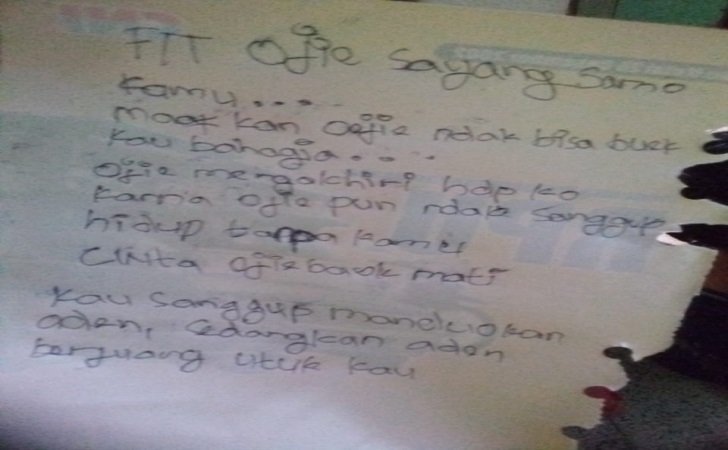 FIT Ofie Sayang Samo
kamu....
maaf kan Oefie ndak bisa buek
kau bahagia.....
Ofie mengakhiri hdp ko
karna Ofie pun ndak Sanggup
hidup tanpa kamu
Cinta Ofie baok mati
Kau Sanggup manduokan
aden, sedangkan aden
berjuang utuk kau